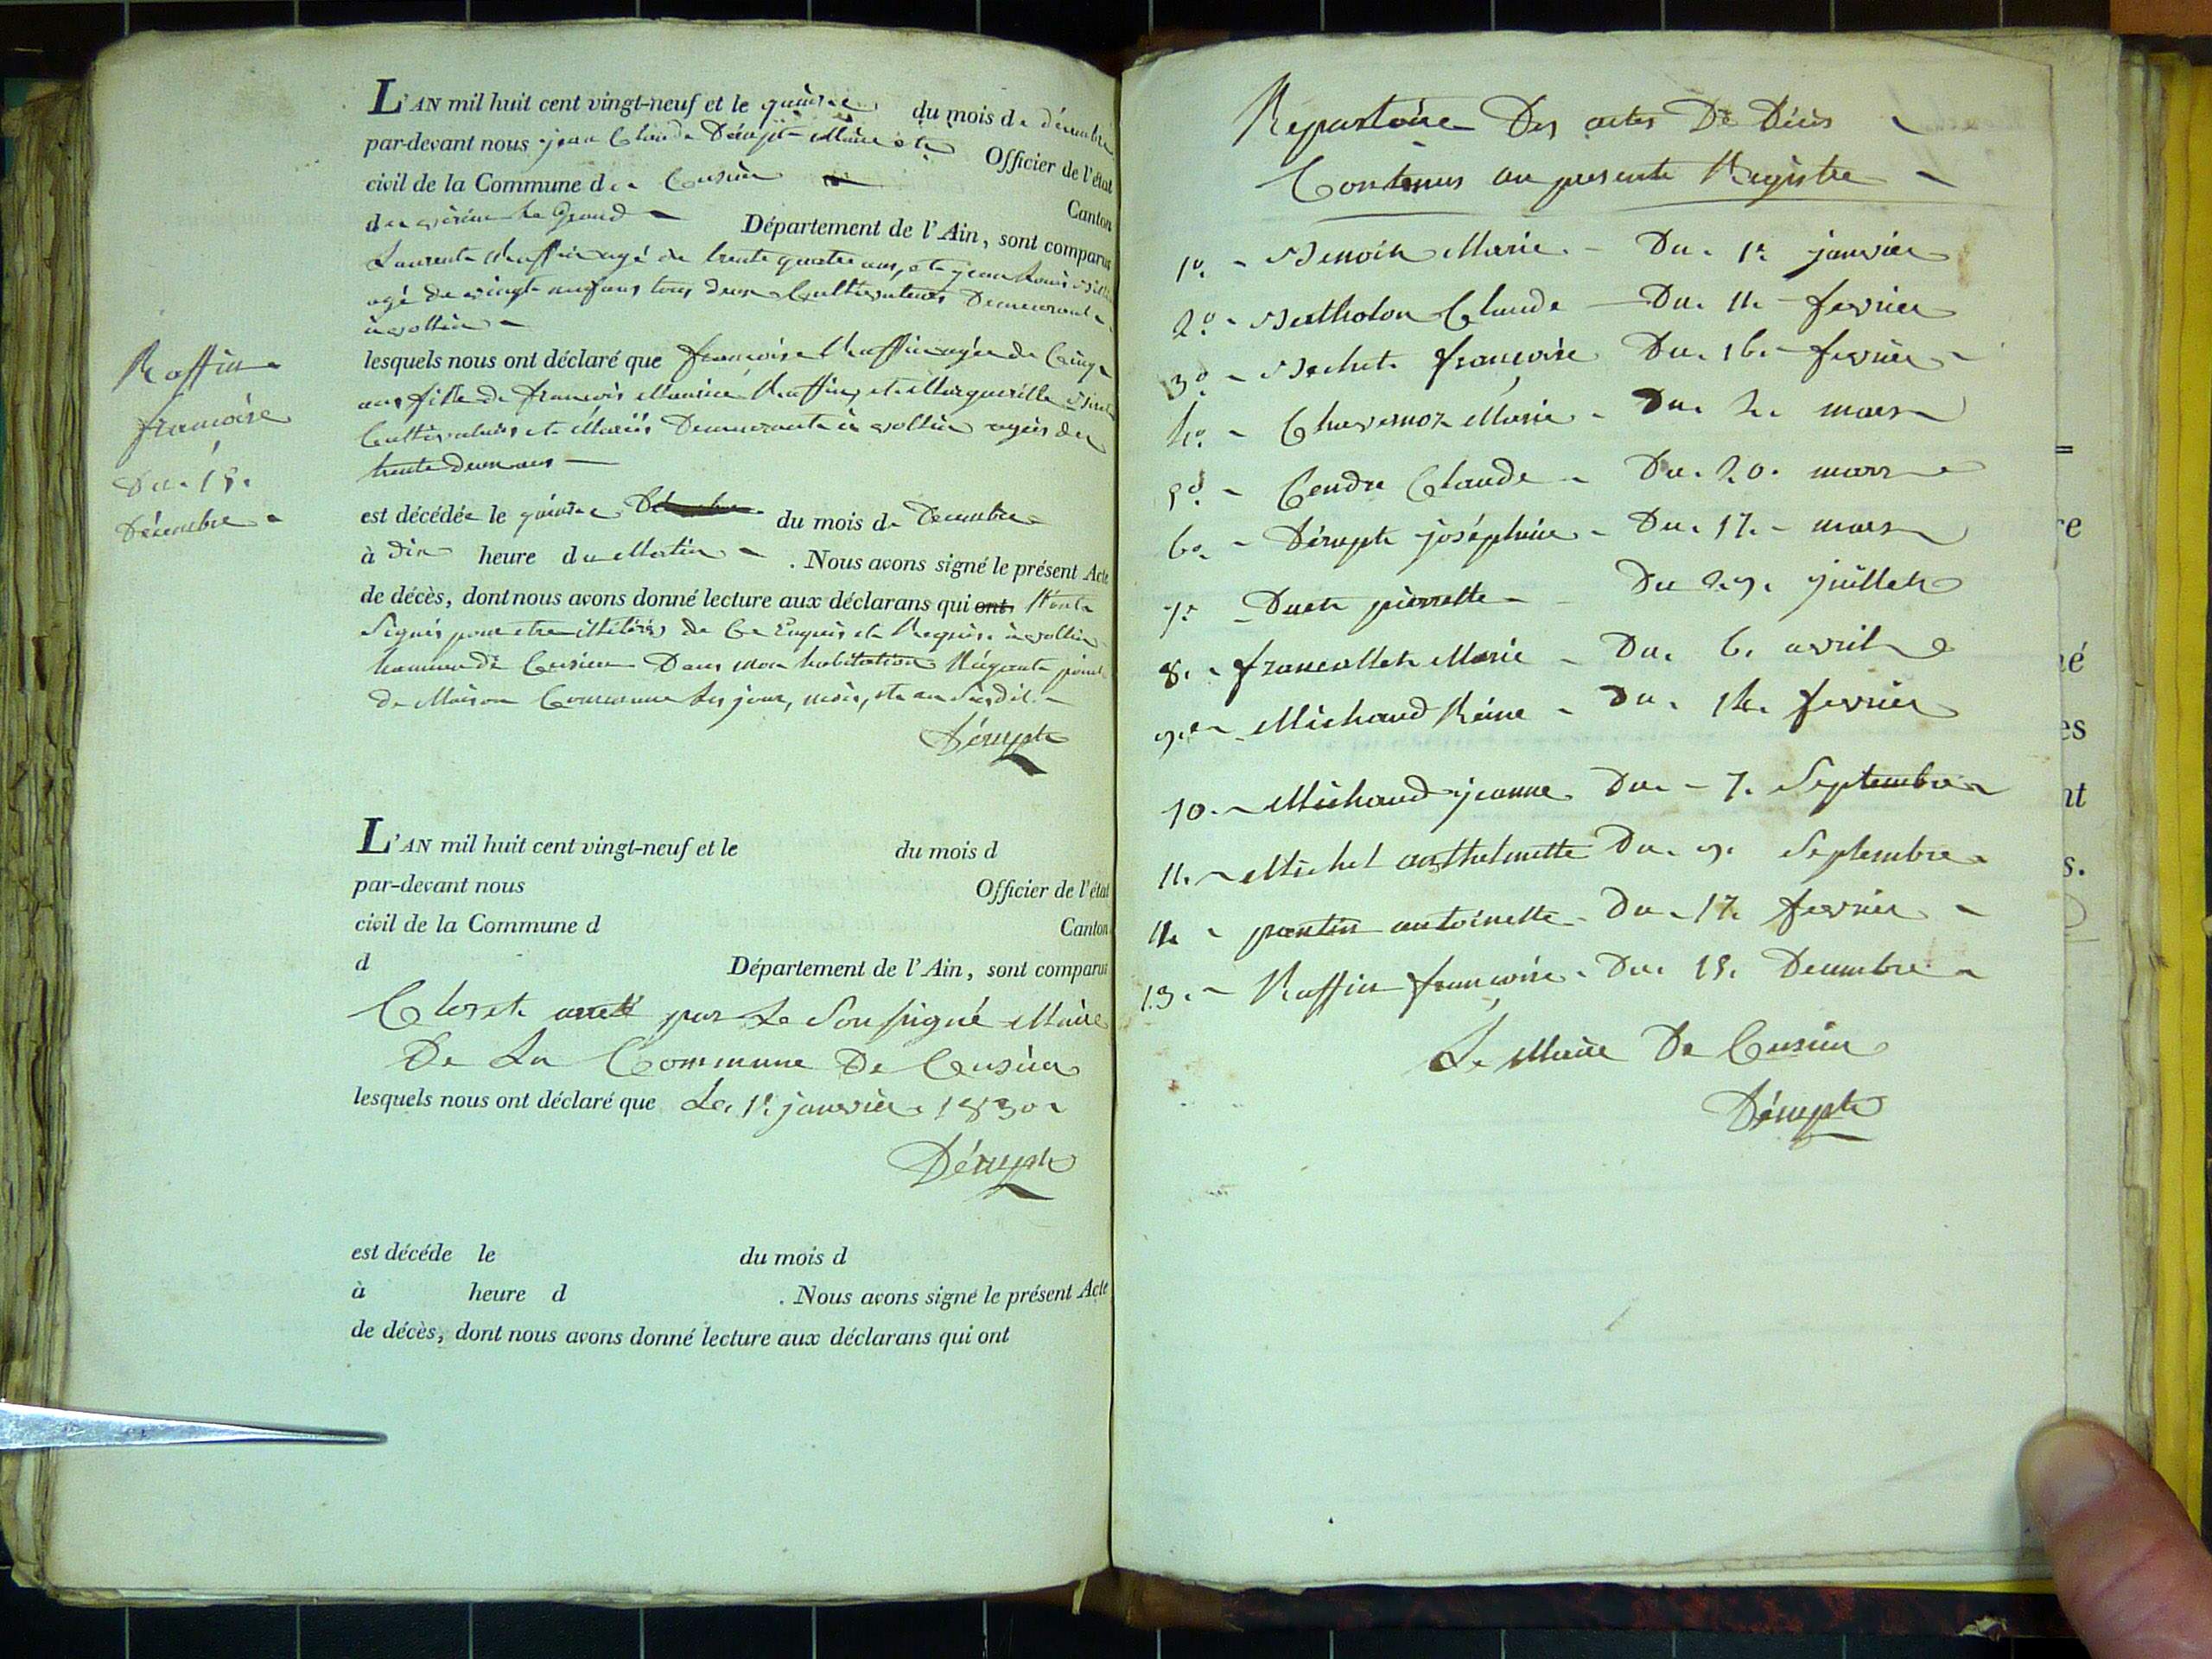 L'AN mil huit cent vingt-neuf et le quinze du mois de décembre
par-devant nous jean Claude Dérupt Maire et Officier de l'état
civil de la Commune de Cusieu Canton
de virieu le Grand Département de l'Ain, sont comparus
Laurent Raffin agé de trente quatre ans, et jean Louis
agé de vingt neuf ans tous deux Cultivateurs Demeurant
à vollin
lesquels nous ont déclaré que françoise Raffin agée de Cinq
ans fille de françois Maurice Raffin, et Margueritte
Cultivateurs et Mariés Demeurant à vollin agés de
trente deux ans
est décédée le quinze du mois de Decembre
à dix heure du Matin . Nous avons signé le présent Acte
de décès, dont nous avons donné lecture aux déclarans qui ont N'ont
Signés pour etre illitérés de Ce Enquis et Requis. à vollin
hameau de Cusieu Dans mon habitation N'ayant point
de Maison Commune les jour, mois, et an Susdit.
Dérupt
Raffin
françoise
Du. 15.
Décembre
L'AN mil huit cent vingt-neuf et le du mois d
par-devant nous Officier de l'état
civil de la Commune d Canton
d Département de l'Ain, sont comparus
Clos et arreté par Le Soussigné Maire
De La Commune De Cusieu
lesquels nous ont déclaré que Le 1r janvier 1830
Dérupt
est décéde le du mois d
à heure d . Nous avons signé le présent Acte
de décès, dont nous avons donné lecture aux déclarans qui ont
Repertoire Des actes De Décès
Contenus au presente Registre
1o. - Benoit Marie. - Du. 1r janvier
2o. - Bertholon Claude - Du. 11. fevrier
3o - Bochet françoise Du. 16. fevrier
4o. - Chavernoz Marie - Du. 2. mars
5o - Cendre Claude - Du. 20. mars
6o. - Dérupt joséphine - Du. 17. - mars
7. - Duet pierrette - Du 29. juillet
8. - francallet Marie - Du. 6. avril
9. - Michaud Reine - Du. 14. fevrier
10. - Michaud jeanne Du - 7. Septembre
11. - Michel anthelmette Du. 9. Septembre
12. - pantin antoinette - Du - 17. fevrier
13. - Raffin françoise - Du. 15. Decembre
Le Maire De Cusieu
Dérupt